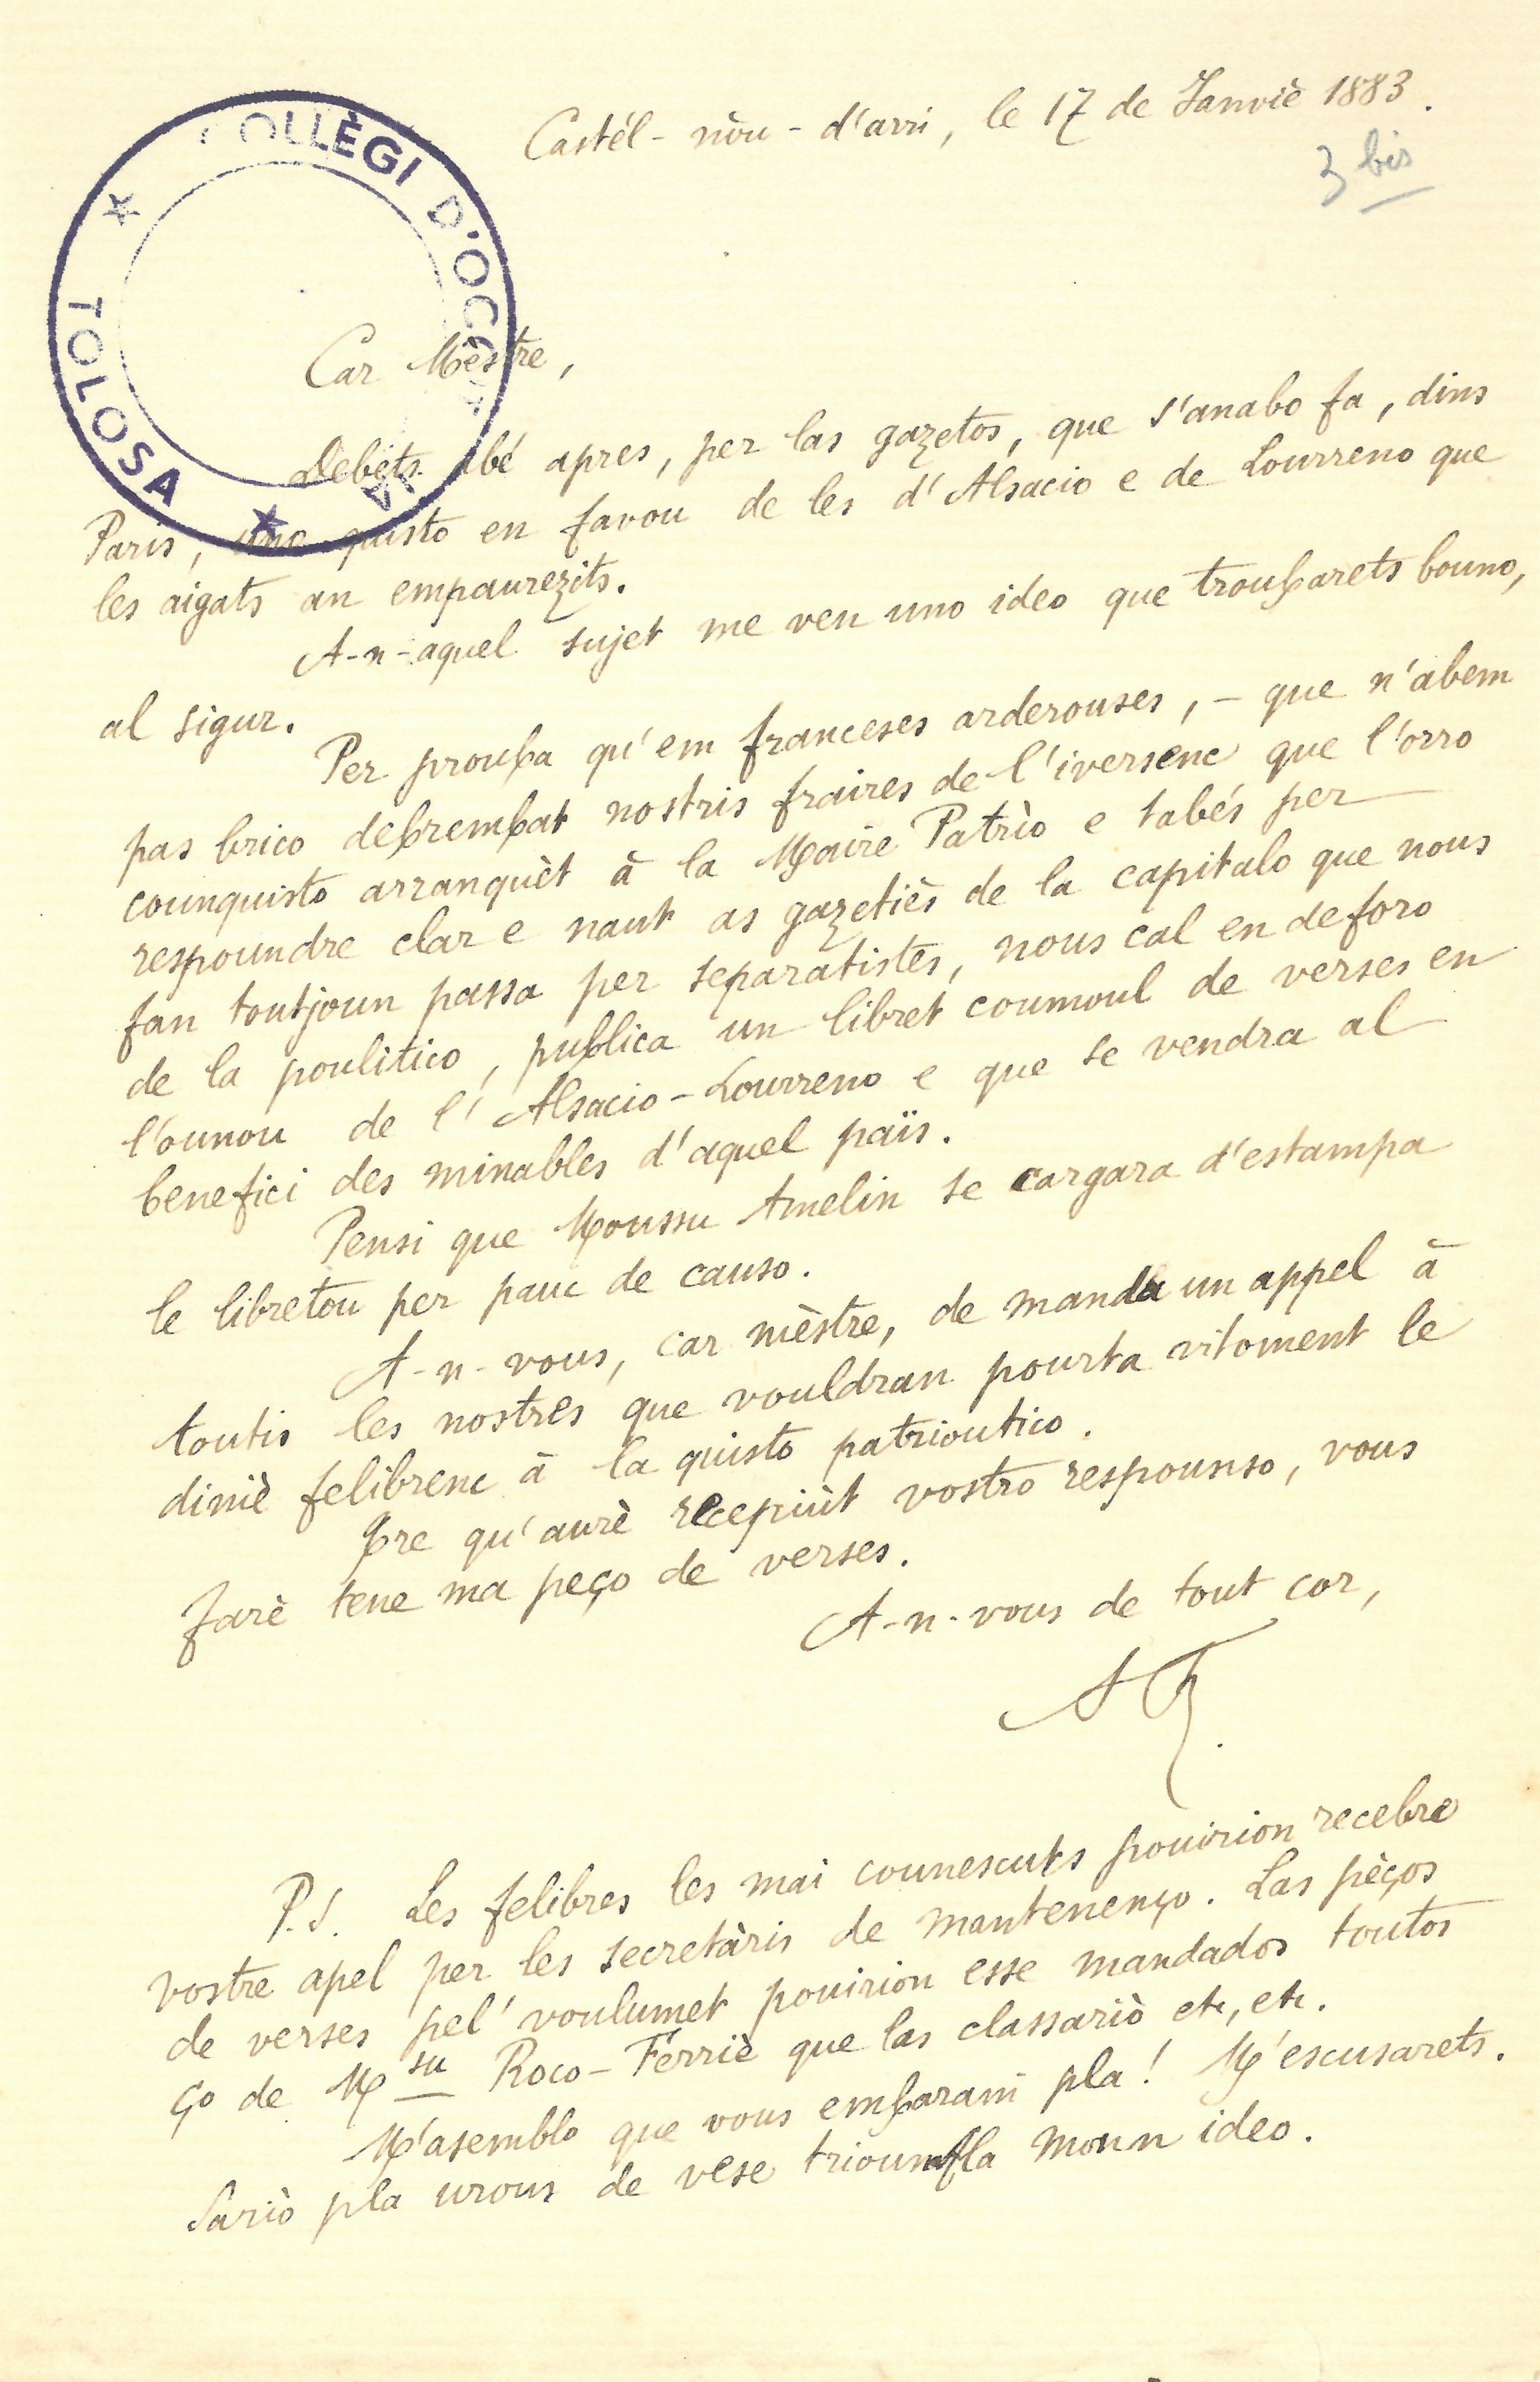 Castél-nòu-d'arri, le 17 de Janviè 1883.
3 bis
COLLÈGI D'OCCITANIA
TOLOSA
Car Mèstre,
Debets abé apres, per las gazetos, que s'anabo fa, dins
Paris, uno quisto en favou de les d'Alsacio e de Lourreno que
les aigats an empaurezits.
A-n-aquel sujet me ven uno ideo que troubarets bouno,
al sigur.
Per prouba qu'em franceses arderouses, – que n'abem
pas brico debrembat nostris fraires de l'iversenc que l'orro
counquisto arranquèt à la Maire Patrio e tabés per
respoundre clar e naut as gazetiès de la capitalo que nous
fan toutjoun passa per separatistes, nous cal en deforo
de la poulitico, publica un libret coumoul de verses en
l'ounou de l'Alsacio-Lourreno e que se vendra al
benefici des minables d'aquel païs.
Pensi que Moussu Amelin se cargara d'estampa
le libretou per pauc de causo.
A-n-vous, car mèstre, de manda un appel à
toutis les nostres que vouldran pourta vitoment le
diniè felibrenc à la quisto patrioutico.
Tre qu'aurè recepiùt vostro respounso, vous
farè tene ma peço de verses.
A-n-vous de tout cor,
P.S. Les felibres les mai counescuts pouirion recebre
vostre apel per les secretàris de mantenenço. Las pèços
de verses pel' voulumet pouirion esse mandados toutos
ço de Msu Roco-Ferriè que las classariò etc, etc.
M'asemblo que vous embarani pla! M'escusarets.
Sariò pla urous de vese trioumfla moun ideo.